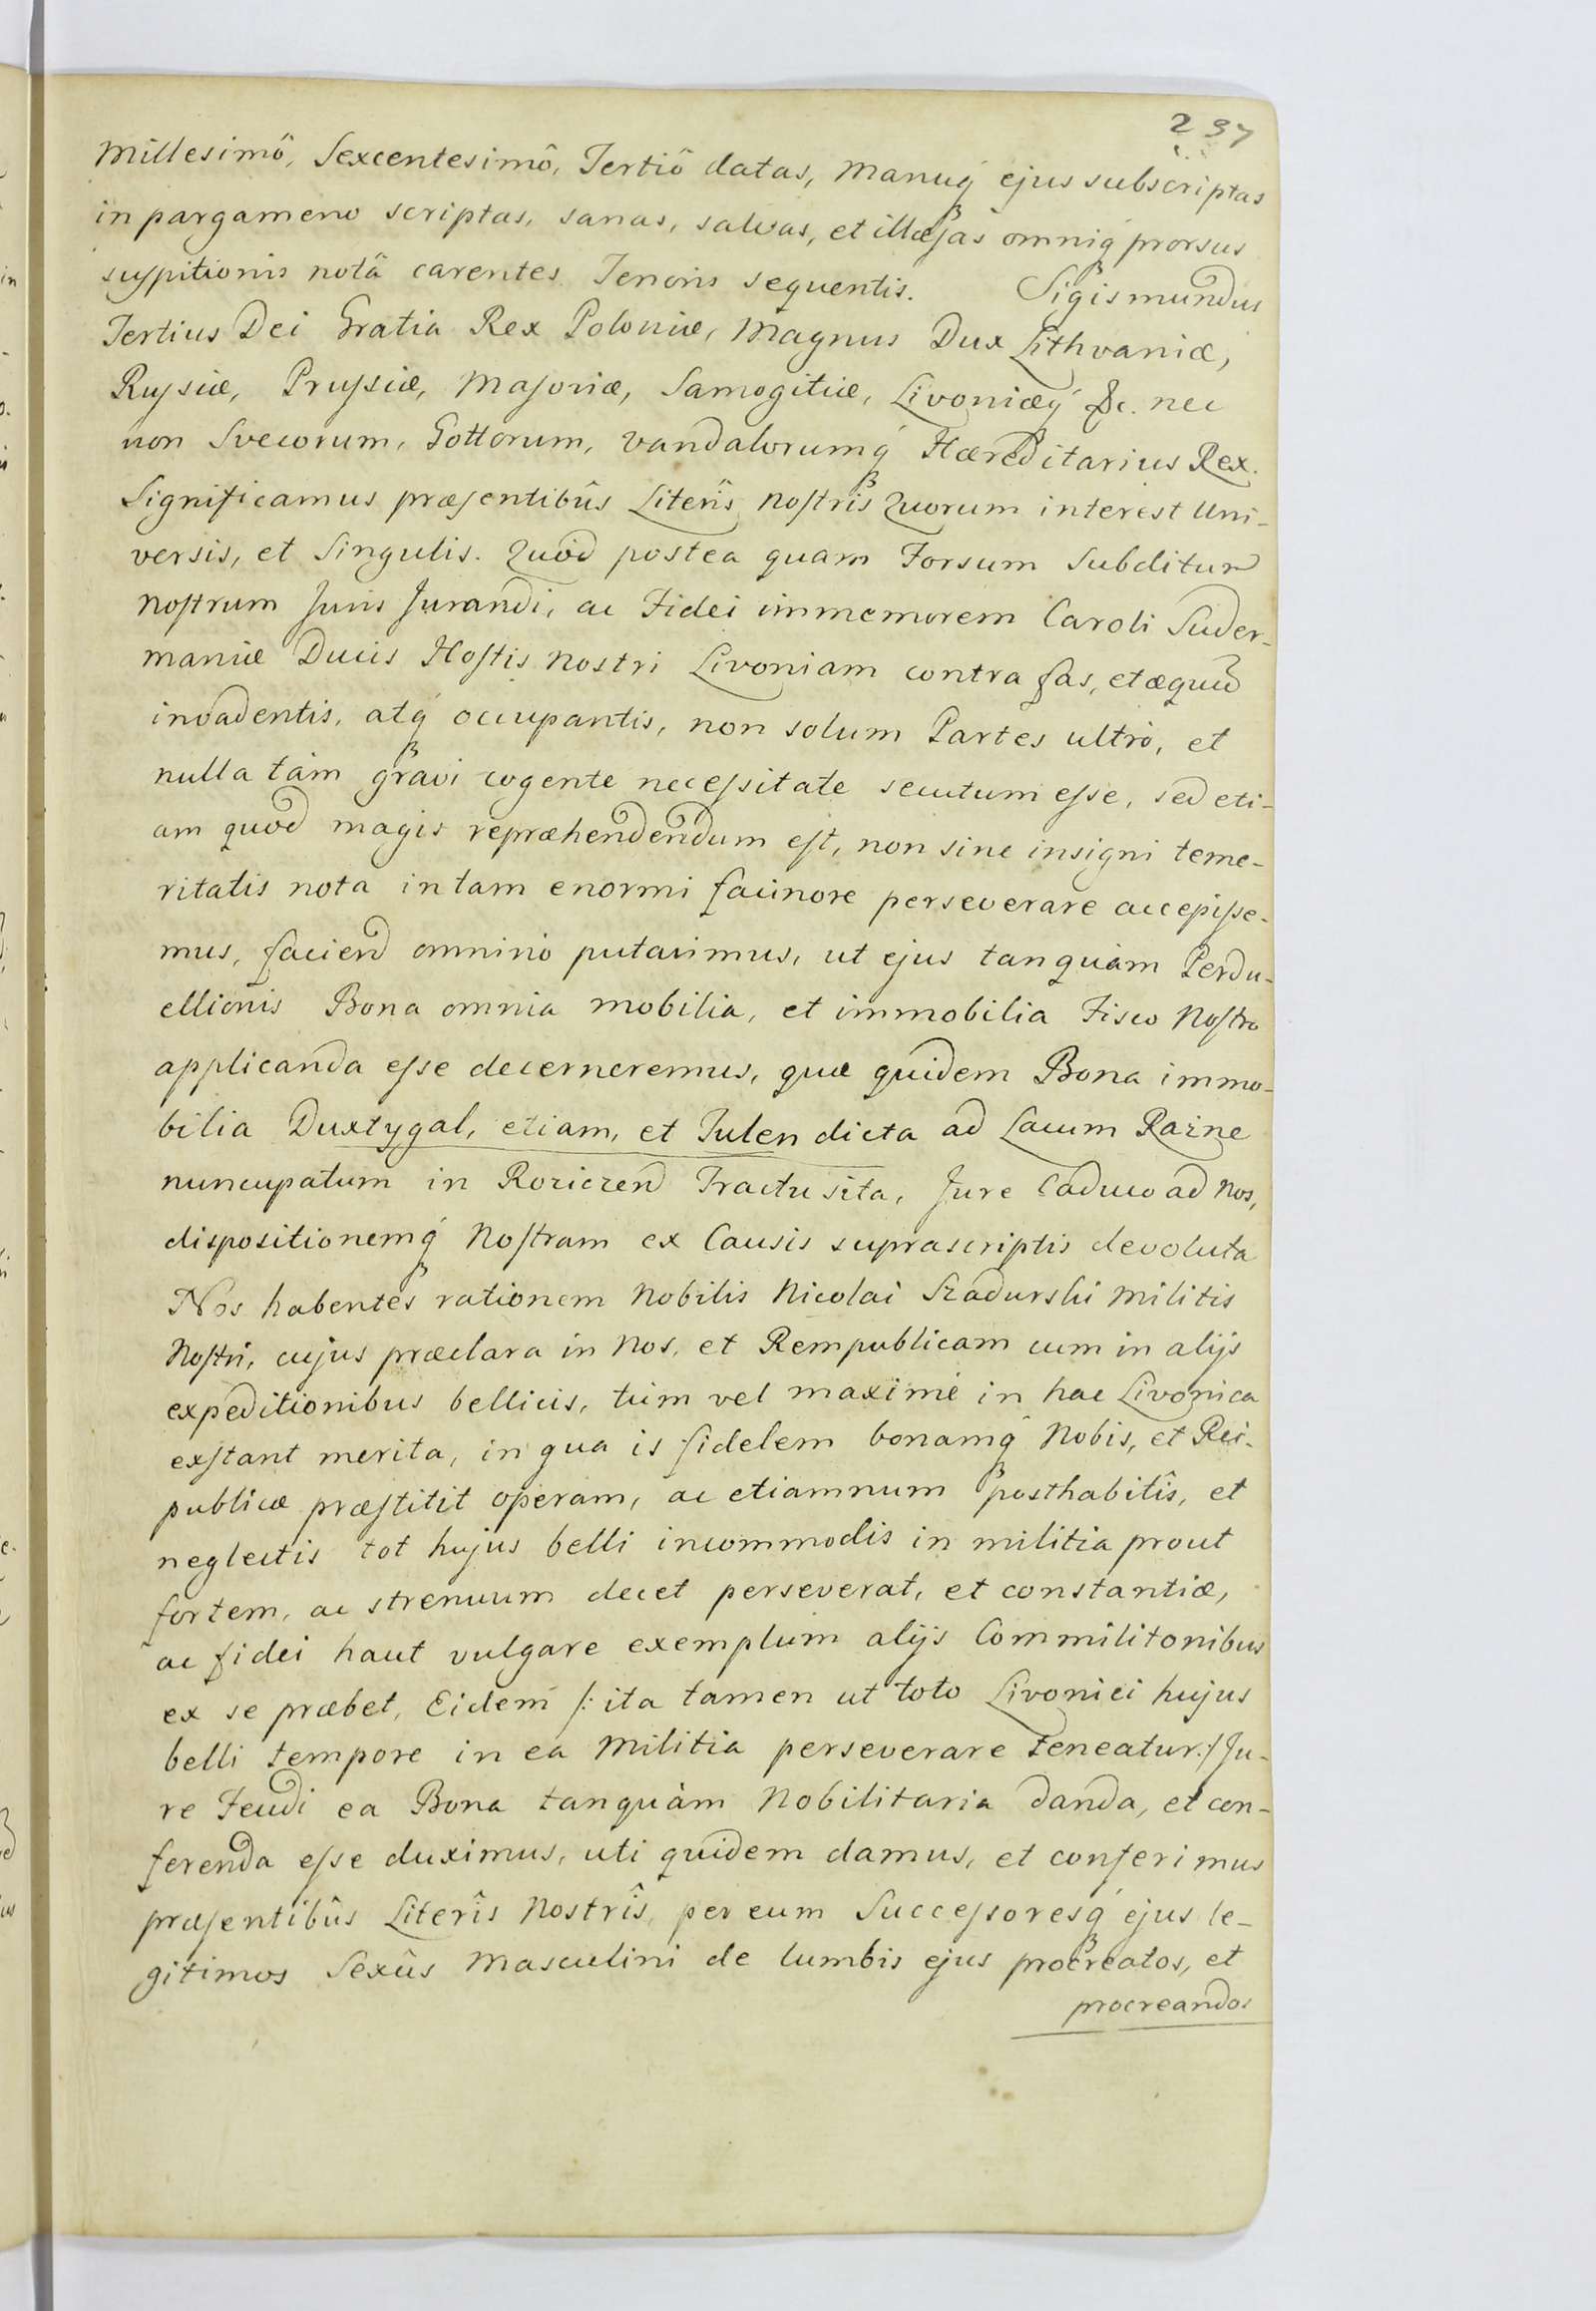 237
Millesimô, Sexcentesimô, Tertiô datas, Manuq́ ejus subscriptas
in pargameno scriptas, sanas, salvas, et illæsas omniq́ prorsus
suspitionis notâ carentes Tenoris sequentis. Sigismundus
Tertius Dei Gratia Rex Poloniæ, Magnus Dux Lithvaniæ,
Russiæ, Prussiæ, Masoviæ, Samogitiæ, Livoniæq́ &c. nec
non Svecorum, Gottorum, Vandalorumq́ Hæreditarius Rex.
Significamus præsentibûs Literîs Nostrîs Quorum interest Uni-
versis, et Singulis. Quod postea quam Forsum Subditum
Nostrum Juris Jurandi, ac Fidei immemorem Caroli Suder-
maniæ Ducis Hostis Nostri Livoniam contra fas, et æquũ
invadentis, atq́ occupantis, non solum Partes ultrò, et
nulla tàm gravi cogente necessitate secutum esse, sed eti-
am quod magis repræhendendum est, non sine insigni teme-
ritatis nota in tam enormi facinore perseverare accepisse-
mus, faciend omnino putavimus, ut ejus tanquàm Perdu-
ellionis Bona omnia mobilia, et immobilia Fisco Nostro
applicanda esse decerneremus, quæ quidem Bona immo-
bilia Duxtygal, etiam, et Tulen dicta ad Lacum Razne
nuncupatum in Roziczen Tractu sita, Jure Caduco ad Nos,
dispositionemq́ Nostram ex Causis suprascriptis devoluta
Nos habentes rationem Nobilis Nicolai Szadurski Militis
Nostri, cujus præclara in Nos, et Rempublicam cum in alijs
expeditionibus bellicis, tùm vel maximè in hac Livonica
exstant merita, in qua is fidelem bonamq́ Nobis, et Rei-
publicæ præstitit operam, ac etiamnum posthabitîs, et
neglectis tot hujus belli incommodis in militia prout
fortem, ac strenuum decet perseverat, et constantiæ,
ac fidei haut vulgare exemplum alijs Commilitonibus
ex se præbet, Eidem /: ita tamen ut toto Livonici hujus
belli tempore in ea Militia perseverare teneatur :/ Ju-
re Feudi ea Bona tanquàm Nobilitaria danda, et con-
ferenda esse duximus, uti quidem damus, et conferimus
præsentibûs Literîs Nostrîs, per eum Successoresq́ ejus le-
gitimos Sexûs Masculini de lumbis ejus procreatos, et
procreandos